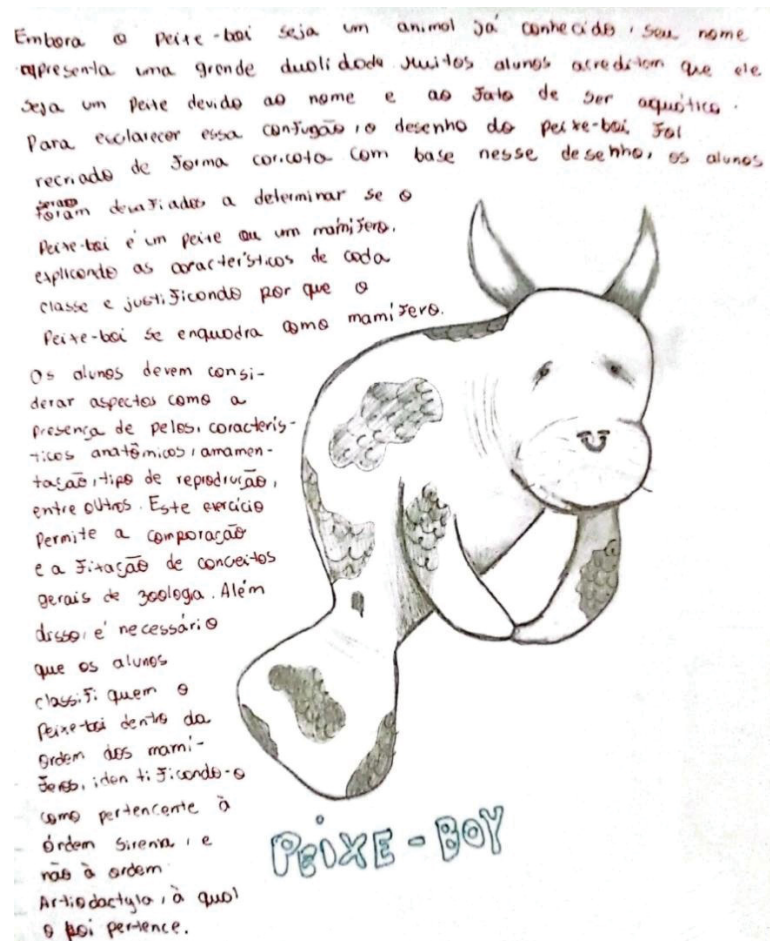 Embora o peixe-boi seja um animal já conhecido, seu nome
apresenta uma grande dualidade muitos alunos acreditam que ele
seja um peixe devido ao nome e ao fato de ser aquático.
Para esclarecer essa confusão, o desenho do peixe-boi foi
recriado de forma caricata com base nesse desenho, os alunos
foram desafiados a determinar se o
peixe-boi é um peixe ou um mamífero,
explicando as características de cada
classe e justificando por que o
peixe-boi se enquadra como mamífero.
Os alunos devem consi-
derar aspectos como a
presença de pelos, caracterís-
ticas anatômicas, amamen-
tação, tipo de reprodrução,
entre outros. Este exercício
permite a comparação
e a fixação de conceitos
gerais de zoologia. Além
disso, é necessário
que os alunos
classifiquem o
peixe-boi dentro da
ordem dos mamí-
feros, identificando-o
como pertencente à
órdem Sirenia, e
não à ordem
Artiodactyla, à qual
o boi pertence.
PEIXE-BOY